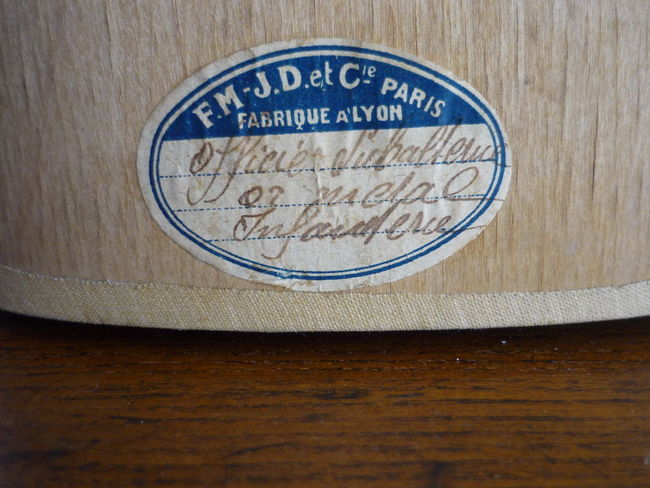 F.M-J.D. et Cie PARIS
FABRIQUE A LYON
Officier Subalterne
or metal
Infanterie